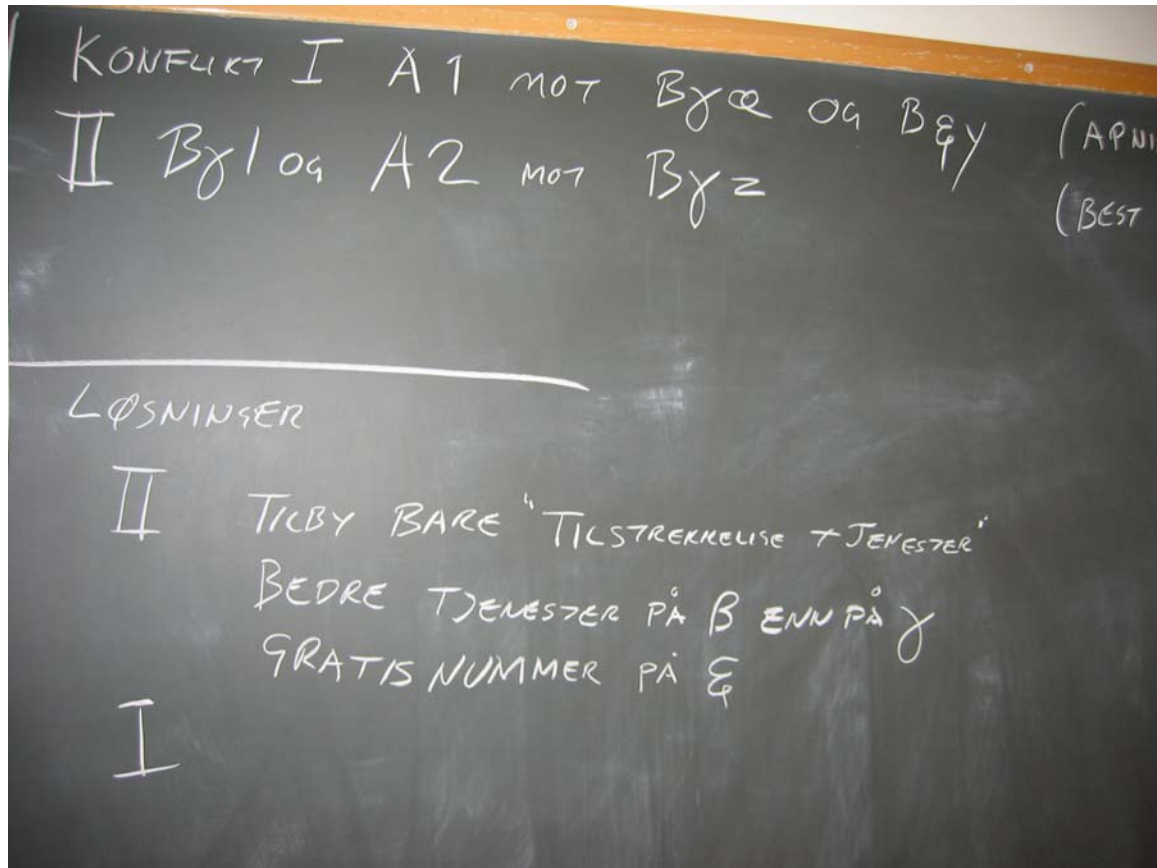 KONFLIKT I A1 MOT Bγæ OG Bξy (APNI
II Bγ1 OG A2 MOT Bγz (BEST
LØSNINGER
II TILBY BARE "TILSTREKKELIGE TJENESTER"
BEDRE TJENESTER PÅ β ENN PÅ γ
GRATIS NUMMER PÅ ξ
I